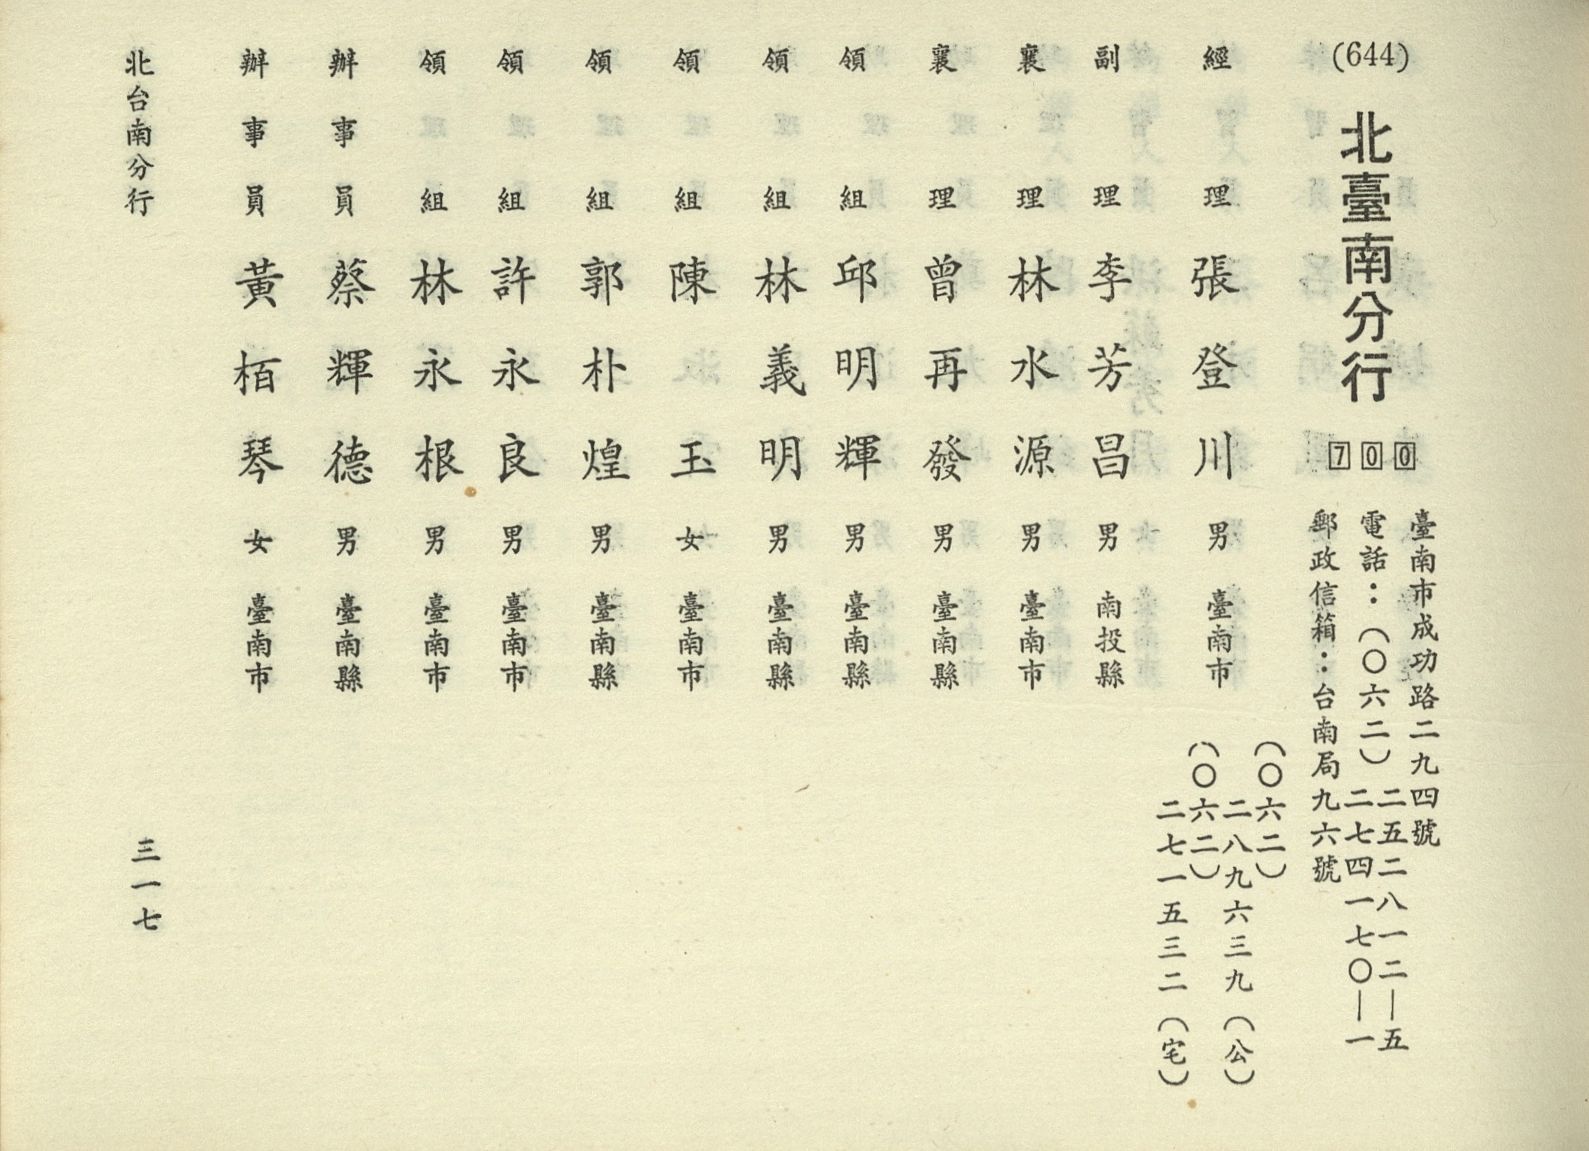 (644)
北臺南分行
700
臺南市成功路二九四號
電話：（〇六二）二五二八一二—五
二七四一七〇—一
郵政信箱：台南局九六號
經理 張登川 男 臺南市
（〇六二）二八九六三九（公）
（〇六二）二七一五三二（宅）
副理 李芳昌 男 南投縣
襄理 林水源 男 臺南市
襄理 曾再發 男 臺南縣
領組 邱明輝 男 臺南縣
領組 林義明 男 臺南縣
領組 陳玉 女 臺南市
領組 郭朴煌 男 臺南縣
領組 許永良 男 臺南市
領組 林永根 男 臺南市
辦事員 蔡輝德 男 臺南縣
辦事員 黃栢琴 女 臺南市
北台南分行
三一七